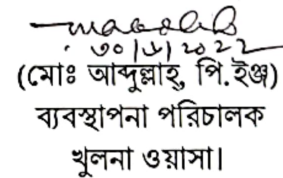 ৩০/৬/২০২২
(মোঃ আব্দুল্লাহ্, পি.ইঞ্জ)
ব্যবস্থাপনা পরিচালক
খুলনা ওয়াসা।